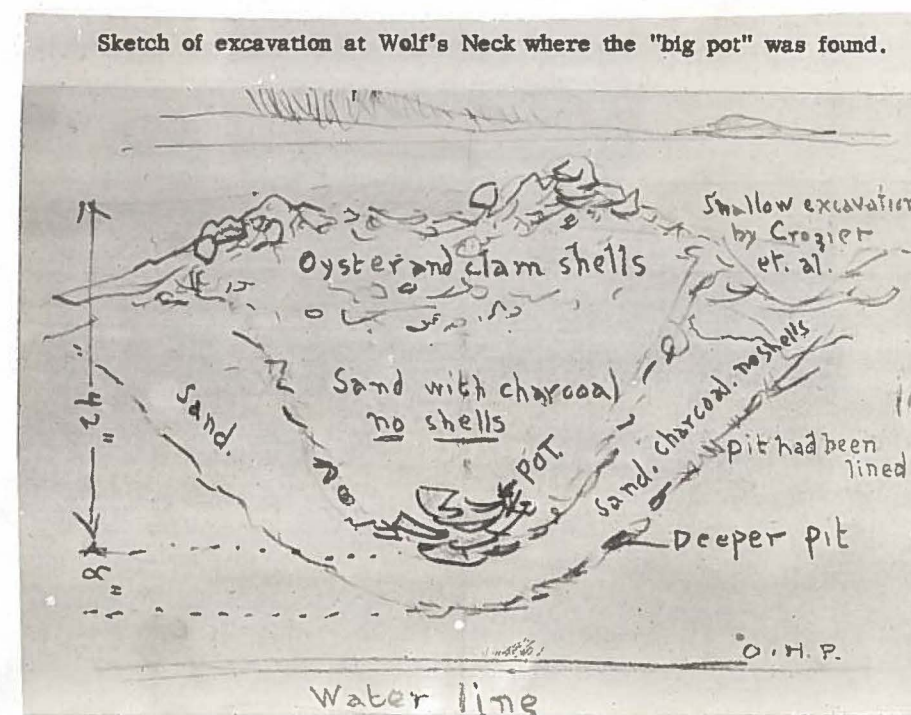 Sketch of excavation at Wolf's Neck where the "big pot" was found.
Shallow excavation
by Crozier
et. al.
Oyster and clam shells
Sand with charcoal
no shells
Sand.
Pot.
Sand, charcoal, no shells
pit had been
lined
Deeper pit
24"
8"
O.H.P.
Water line